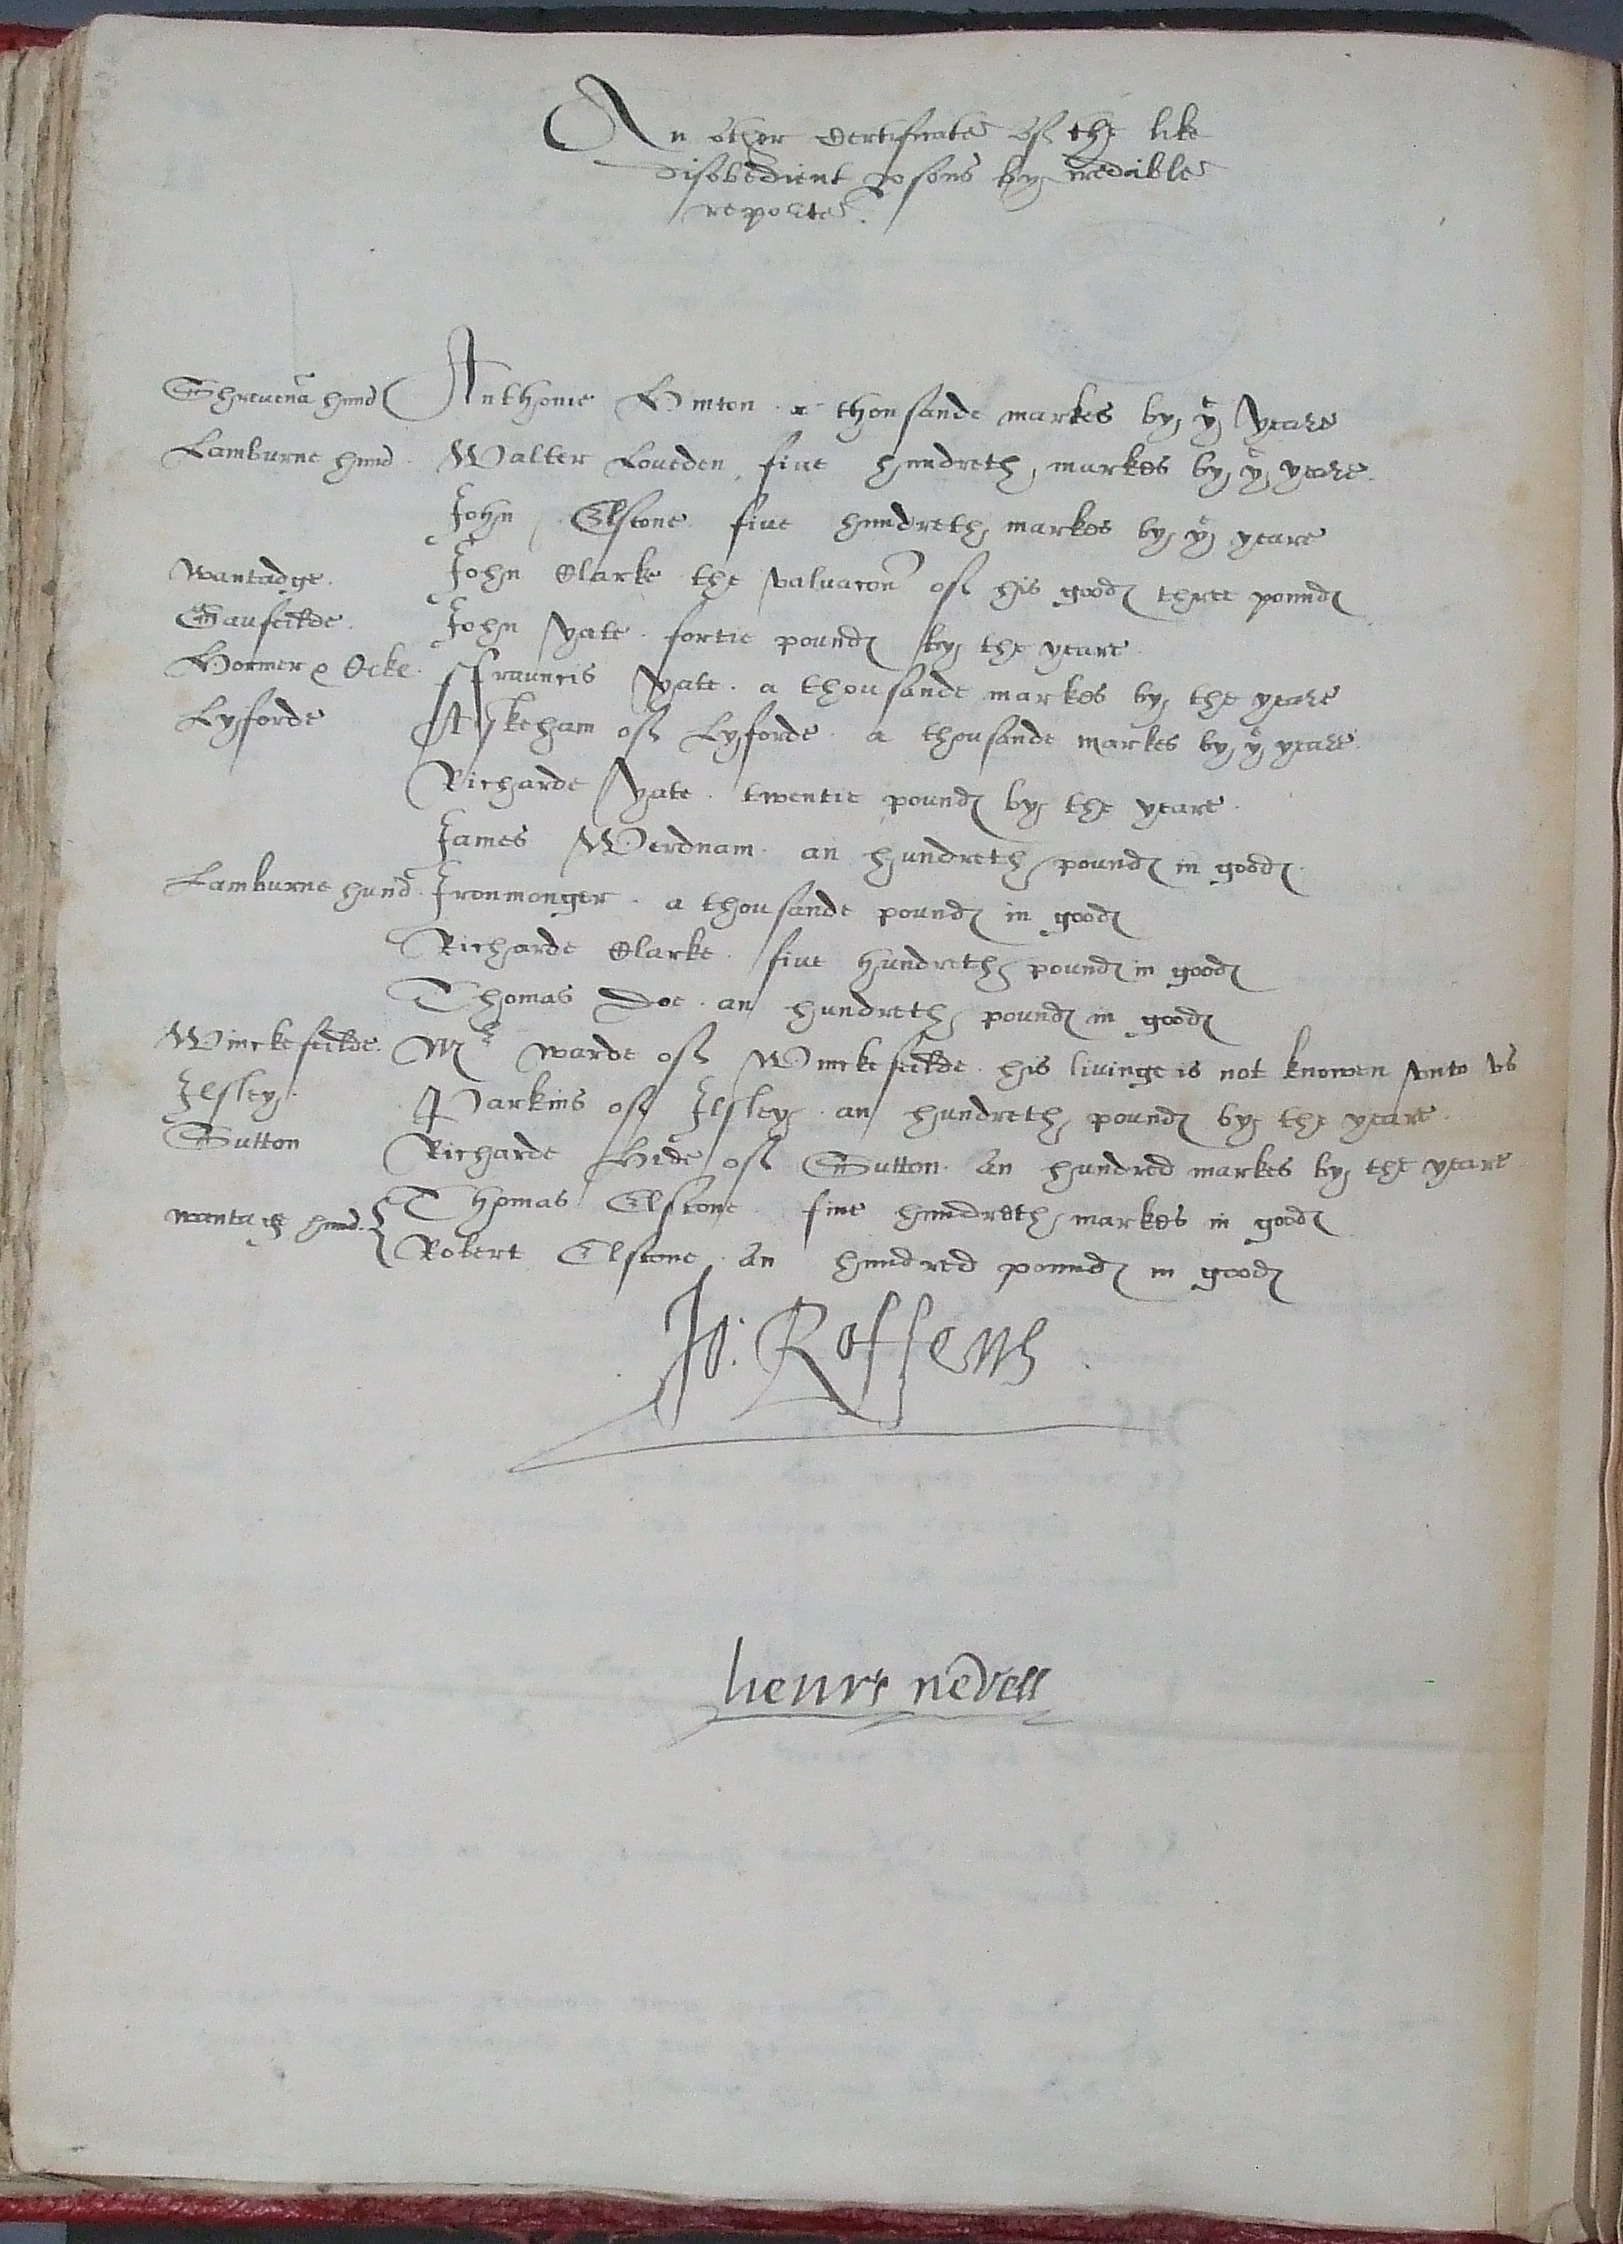 An other Certificate of the like
disobedient psons by credible
reporte.
Shreuenā hund Anthonie Hinton a thousande markes by yͤ yeare
Lamburne hund. Walter Loueden, fiue hundreth markes by yͤ yeare.
John Elstone fiue hundreth markes by yͤ yeare
Wantadge. John Clarke the valuacon of his goodꝭ three poundꝭ
Ganfeilde. John Yate. fortie poundꝭ by the yeare.
Hormer & Ocke. ffrauncis Yate. a thousande markes by the yeare
Lyforde keham of Lyforde. a thousande markes by yͤ yeare.
Richarde Yate. twentie poundꝭ by the yeare.
James Werdnam. an hundreth poundꝭ in goodꝭ.
Lamburne hund. Ironmonger. a thousande poundꝭ in goodꝭ
Richarde Clarke. fiue hundreth poundꝭ in goodꝭ
Thomas Doe. an hundreth poundꝭ in goodꝭ
Winckefeilde. Mr warde of Winckefeilde. his livinge is not knowen vnto vs
Ilsley. Parkins of Ilsley. an hundreth poundꝭ by the yeare.
Sutton Richarde Hide of Sutton. An hundred markes by the yeare
wantage hund. Thomas Elstone. fiue hundreth markes in goodꝭ
Robert Elstone. An hundred poundꝭ in goodꝭ
Jo: Roffens.
henry nevell